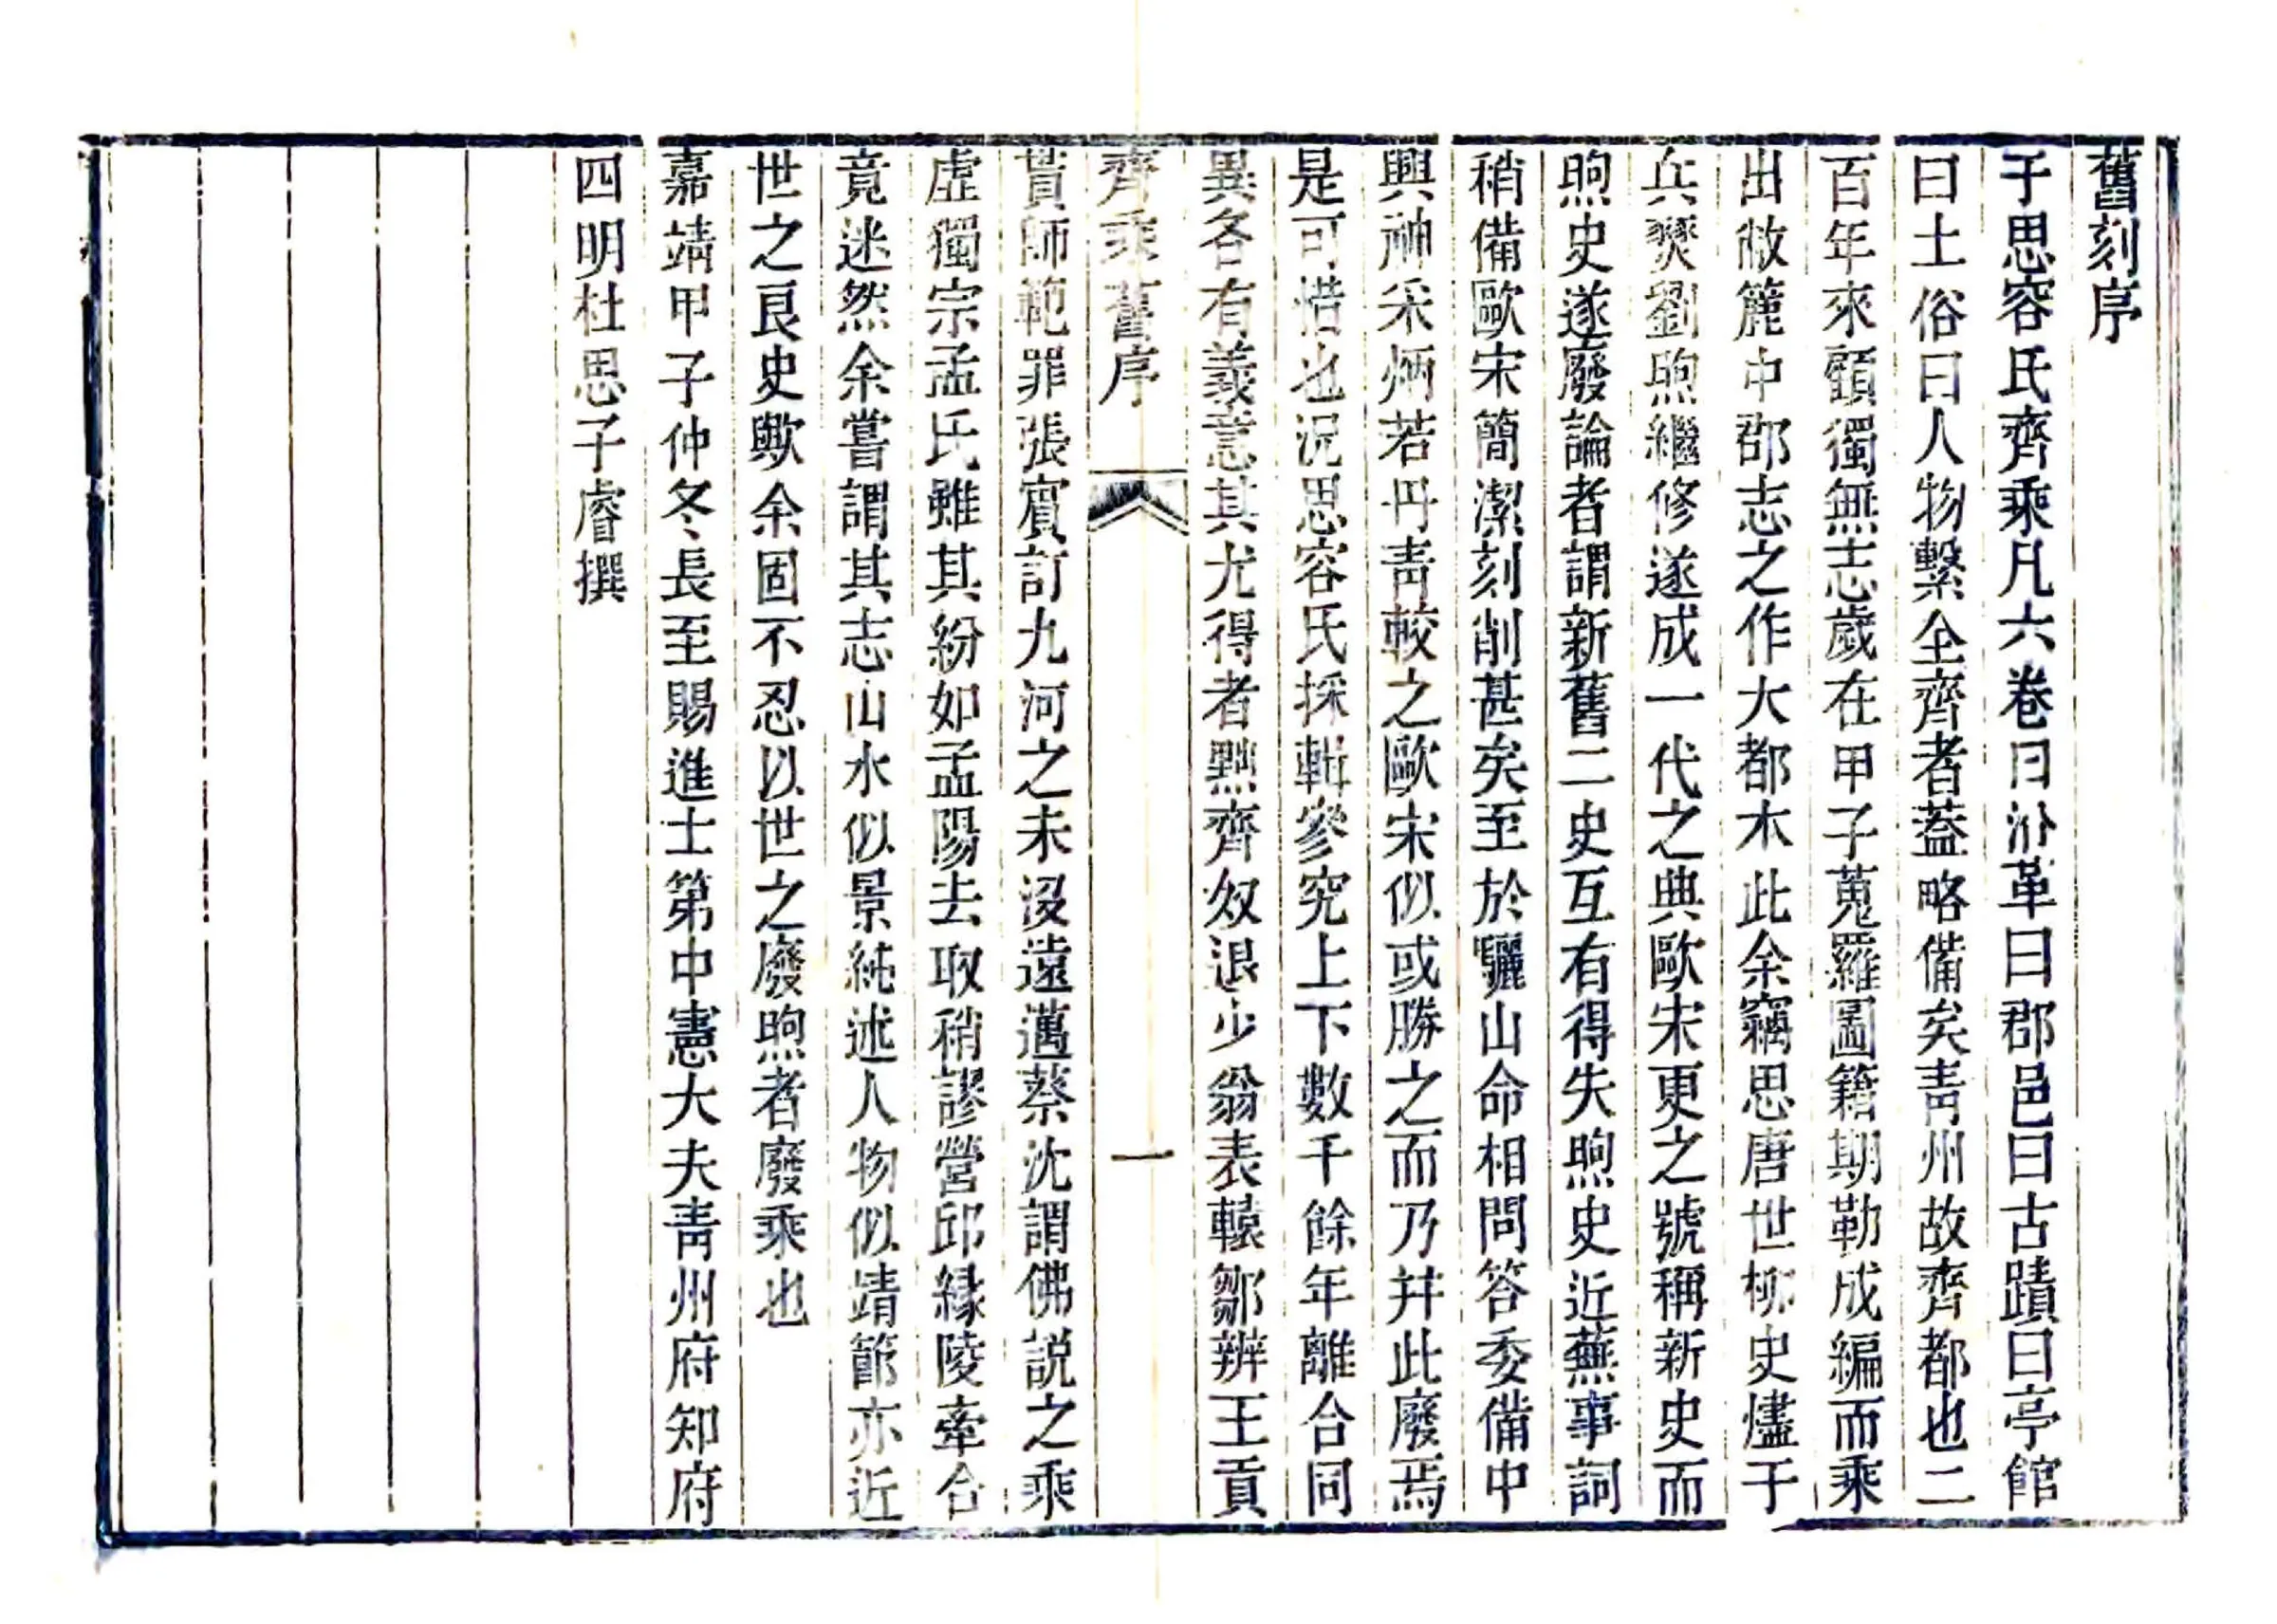 舊刻序
于思容氏齊乘凡六卷曰沿革曰郡邑曰古蹟曰亭館
曰土俗曰人物繫全齊者蓋略備矣青州故齊都也二
百年來顧獨無志歲在甲子蒐羅圖籍期勒成編而乘
出敝簏中郡志之作大都本此余竊思唐世柳史燼于
兵燹劉煦繼修遂成一代之典歐宋更之號稱新史而
煦史遂廢論者謂新舊二史互有得失煦史近蕪事詞
稍備歐宋簡潔刻削甚矣至於驪山命相問答委備中
興神采炳若丹青較之歐宋似或勝之而乃并此廢焉
是可惜也況思容氏採輯參究上下數千餘年離合同
異各有義意其尤得者黜齊奴退少翁表轅鄒辨王貢
齊乘舊序
一
貰師範罪張賓訂九河之未沒遠邁蔡沈謂佛說之乘
虛獨宗孟氏雖其紛如孟陽去取稍謬營邱緣陵牽合
竟迷然余嘗謂其志山水似景純述人物似靖節亦近
世之良史歟余固不忍以世之廢煦者廢乘也
嘉靖甲子仲冬長至賜進士第中憲大夫青州府知府
四明杜思子睿撰